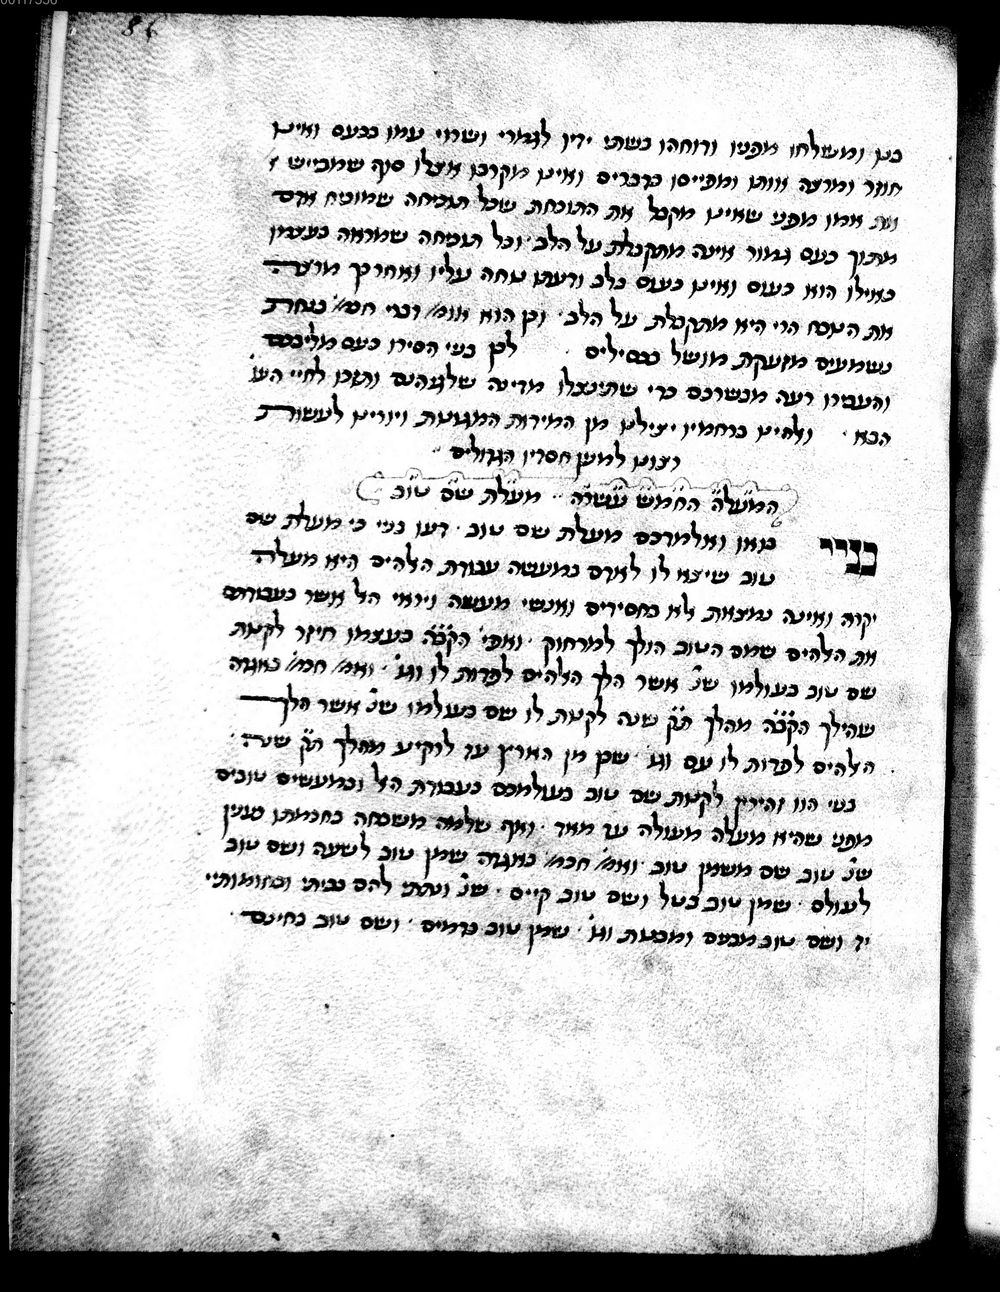 86
בנו ומשלחו מפניו ודוחהו בשתי ידיו לגמרי ושרוי עמו בכעס ואינו
חוזר ומרצה אותו ומפייסו בדברים ואינו מקרבו אצלו סוף שמבייש
את אמו מפני שאינו מקבל את התוכחת שכל תוכחה שמוכיח אדם
מתוך כעס גמור אינה מתקבלת על הלב וכל תוכחה שמראה בעצמו
כאילו הוא כועס ואינו כועס בלב ודעתו שחה עליו ואחר כך מרצה
את הבן הרי היא מתקבלת על הלב וכן הוא אומ' דברי חכמ' בנחת
נשמעים מזעקת מושל בכסילים לכן בני הסירו כעס מלבכם
והעבירו רעה מבשרכם כדי שתינצלו מדינה שלגיהנם ותזכו לחיי העו'
הבא ואלהינו ברחמיו יצילנו מן המידות המגונות ויורינו לעשות
רצונו למען חסדיו הגדולים
המעלה החמש עשרה מעלת שם טוב
בני בואו ואלמדכם מעלת שם טוב דעו בני כי מעלת שם
טוב שיצא לו לאדם במעשה עבודת האלהים היא מעלה
יקרה ואינה נמצאת אלא בחסידים ואנשי מעשה ויראי האל אשר בעבודתם
את האלהים שמם הטוב הולך למרחוק ואפי' הקב"ה בעצמו חיזר לקנות
שם טוב בעולמו שנ' אשר הלך האלהים לפדות לו וגו' ואמ' חכמ' באגדה
שהילך הקב"ה מהלך ת"ק שנה לקנות לו שם בעולמו שנ' אשר הלך
האלהים לפדות לו עם וגו' שכן מן הארץ עד לרקיע מהלך ת"ק שנה
בני הוו זהירין לקנות שם טוב בעולמכם בעבודת האל ובמעשים טובים
מפני שהיא מעלה מעולה עד מאד ואף שלמה משבחה בחכמתו כענין
שנ' טוב שם משמן טוב ואמ' חכמ' באגדה שמן טוב לשעה ושם טוב
לעולם שמן טוב בטל ושם טוב קיים שנ' ונתתי להם בביתי ובחומותיי
יד ושם טוב מבנים ומבנות וגו' שמן טוב בדמים ושם טוב בחינם